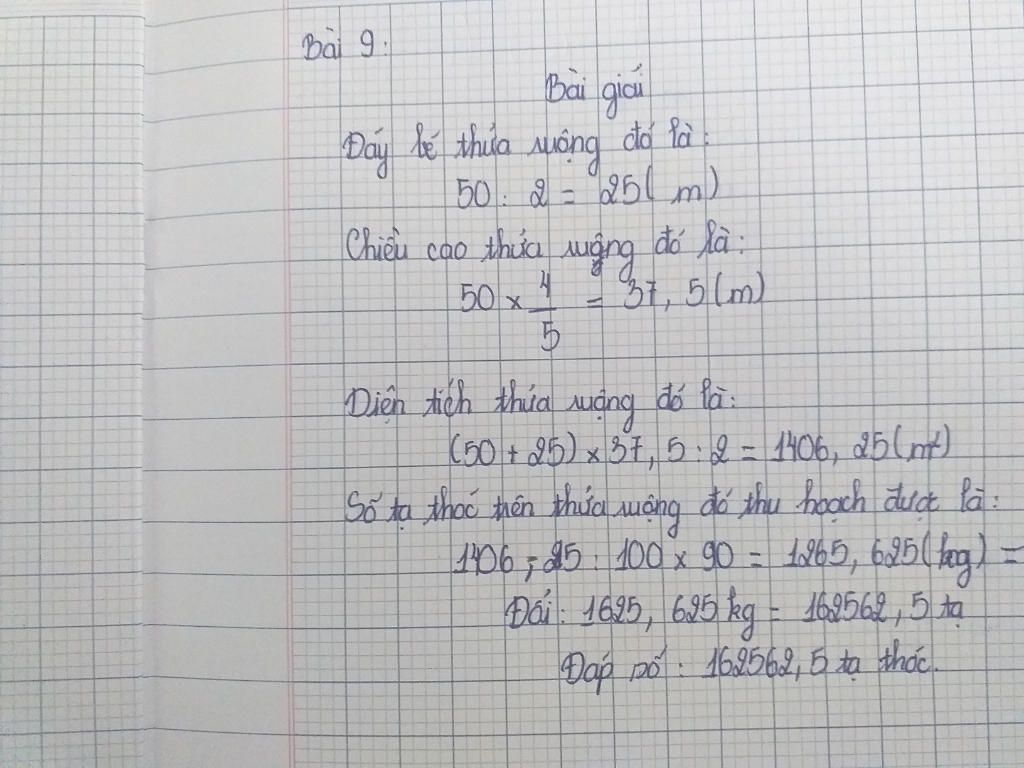 Bài 9:
Bài giải
Đáy bé thửa ruộng đó là:
50 : 2 = 25 ( m)
Chiều cao thửa ruộng đó là:
50 × 4/5 = 37, 5 (m)
Diện tích thửa ruộng đó là:
(50 + 25) × 37, 5 : 2 = 1406, 25 (m²)
Số tạ thóc trên thửa ruộng đó thu hoạch được là:
1406, 25 : 100 × 90 = 1265, 625 (kg) =
Đổi: 1625, 625 kg = 162562, 5 tạ
Đáp số : 162562, 5 tạ thóc.